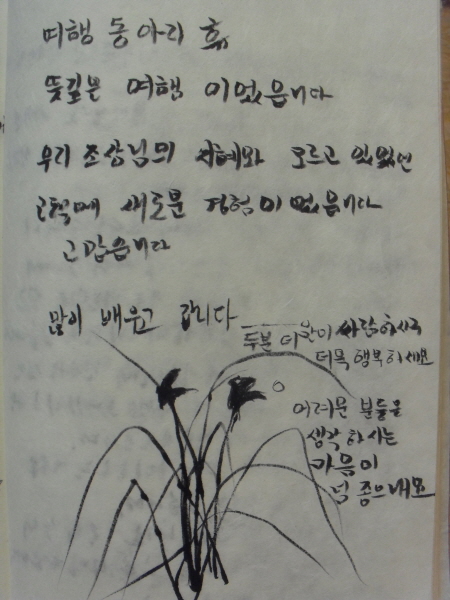 여행 동아리 휴
뜻깊은 여행 이었읍니다
우리 조상님의 지혜와 모르고 있었던
새로운 경험이 었읍니다
고맙읍니다
많이 배우고 갑니다
두분 더 많이 사랑하시고
더욱 행복하세요
어려운 분들을
생각하시는
마음이
넘 좋으네요